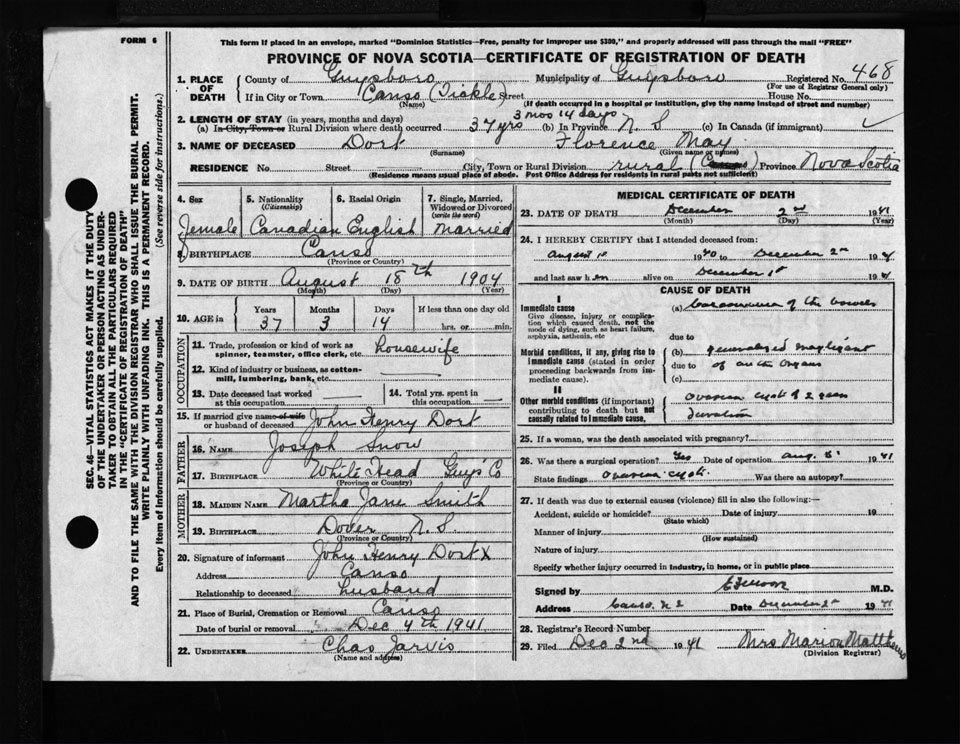 FORM 6
This form if placed in an envelope, marked "Dominion Statistics—Free, penalty for improper use $300," and properly addressed will pass through the mail "FREE"
PROVINCE OF NOVA SCOTIA—CERTIFICATE OF REGISTRATION OF DEATH
SEC. 46—VITAL STATISTICS ACT MAKES IT THE DUTY
OF THE UNDERTAKER OR PERSON ACTING AS UNDER-
TAKER TO OBTAIN ALL THE PARTICULARS REQUIRED
IN THE "CERTIFICATE OF REGISTRATION OF DEATH"
AND TO FILE THE SAME WITH THE DIVISION REGISTRAR WHO SHALL ISSUE THE BURIAL PERMIT.
WRITE PLAINLY WITH UNFADING INK. THIS IS A PERMANENT RECORD.
Every item of information should be carefully supplied. (See reverse side for instructions.)
1. PLACE OF DEATH
County of Guysboro Municipality of Guysboro Registered No. 468
(For use of Registrar General only)
If in City or Town Canso (Tickle) Street House No.
(Name) (If death occurred in a hospital or institution, give the name instead of street and number)
2. LENGTH OF STAY (in years, months and days) 3 mos 14 days
(a) In City, Town or Rural Division where death occurred 37 yrs (b) In Province N. S (c) In Canada (if immigrant) ✓
3. NAME OF DECEASED Dort Florence May
(Surname) (Given name or names)
RESIDENCE No. Street City, Town or Rural Division rural (Canso) Province Nova Scotia
(Residence means usual place of abode. Post Office Address for residents in rural parts not sufficient)
4. Sex Female
5. Nationality (Citizenship) Canadian
6. Racial Origin English
7. Single, Married, Widowed or Divorced (write the word) Married
8. BIRTHPLACE Canso
(Province or Country)
9. DATE OF BIRTH August 18th 1904
(Month) (Day) (Year)
10. AGE in Years 37 Months 3 Days 14 If less than one day hrs. or min.
OCCUPATION
11. Trade, profession or kind of work as spinner, teamster, office clerk, etc. housewife
12. Kind of industry or business, as cotton-mill, lumbering, bank, etc.
13. Date deceased last worked at this occupation
14. Total yrs. spent in this occupation
15. If married give name of wife or husband of deceased John Henry Dort
FATHER
16. NAME Joseph Snow
17. BIRTHPLACE White Head Guy's Co
(Province or Country)
MOTHER
18. MAIDEN NAME Martha Jane Smith
19. BIRTHPLACE Dover N. S.
(Province or Country)
20. Signature of informant John Henry Dort X
Address Canso
Relationship to deceased husband
21. Place of Burial, Cremation or Removal Canso
Date of burial or removal Dec 4th 1941
22. UNDERTAKER Chas Jarvis
(Name and address)
MEDICAL CERTIFICATE OF DEATH
23. DATE OF DEATH December 2nd 1941
(Month) (Day) (Year)
24. I HEREBY CERTIFY that I attended deceased from:
August 1940 to December 2nd 1941
and last saw her alive on December 1st 1941
CAUSE OF DEATH
I
Immediate cause
Give disease, injury or complication which caused death, not the mode of dying, such as heart failure, asphyxia, asthenia, etc
(a) Carcinoma of the bowels
due to
Morbid conditions, if any, giving rise to immediate cause (stated in order proceeding backwards from immediate cause).
(b) generalized malignant
due to of other organs
(c)
II
Other morbid conditions (if important) contributing to death but not causally related to immediate cause.
Ovarian cyst of 2 years
duration
25. If a woman, was the death associated with pregnancy?
26. Was there a surgical operation? Yes Date of operation Aug. 1941
State findings Ovarian cyst. Was there an autopsy?
27. If death was due to external causes (violence) fill in also the following:—
Accident, suicide or homicide? Date of injury 19
(State which)
Manner of injury
(How sustained)
Nature of injury
Specify whether injury occurred in industry, in home, or in public place
Signed by M.D.
Address Canso. N S Date December 2nd 1941
28. Registrar's Record Number
29. Filed Dec 2nd 1941 Mrs Marion Matthews
(Division Registrar)